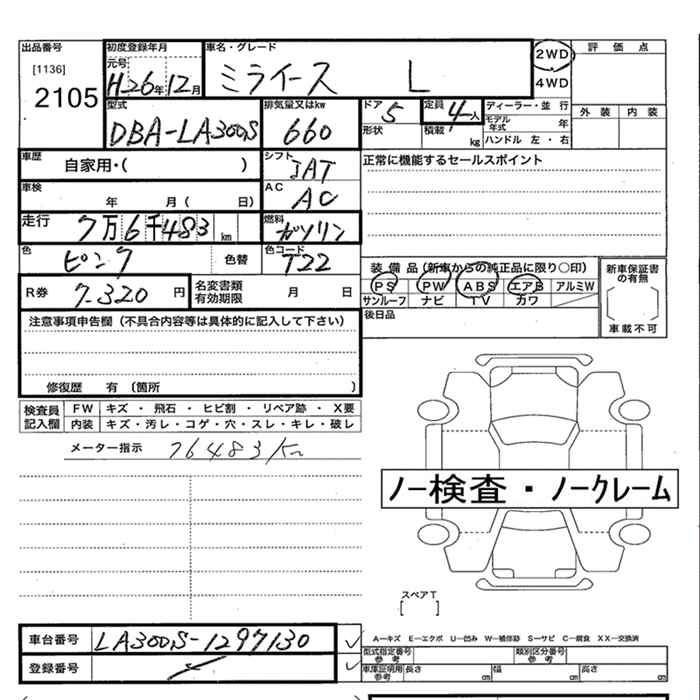 出品番号 初度登録年月 車名・グレード 2WD 評価点
[1136] 元号
2105 H26年12月 ミライース L 4WD
型式 排気量又はkw ドア 定員 ディーラー・並行 外装 内装
DBA-LA300S 660 5 4人 モデル年式 年
形状 積載 kg ハンドル 左・右
車歴 自家用・( ) シフト IAT 正常に機能するセールスポイント
車検 年 月 ( 日) AC AC
走行 7万6千483 km 燃料 ガソリン
色 ピンク 色替 色コード T22 装備品 (新車からの純正品に限り〇印) 新車保証書の有無
R券 7.320円 名変書類有効期限 月 日 PS PW ABS エアB アルミW
サンルーフ ナビ TV カワ [ ]
注意事項申告欄 (不具合内容等は具体的に記入して下さい) 後日品 車載不可
修復歴 有 (箇所 )
検査員 FW キズ ・ 飛石 ・ ヒビ割 ・ リペア跡 ・ X要
記入欄 内装 キズ・汚レ・コゲ・穴・スレ・キレ・破レ
メーター指示 76483Km
ノー検査・ノークレーム
スペアT
[ ]
車台番号 LA300S-1297130 A−キズ E−エクボ U−凹み W−補修跡 S−サビ C−腐食 XX−交換済
型式指定番号参考 類別区分番号参考
登録番号 車庫証明用参考 長さ cm 幅 cm 高さ cm